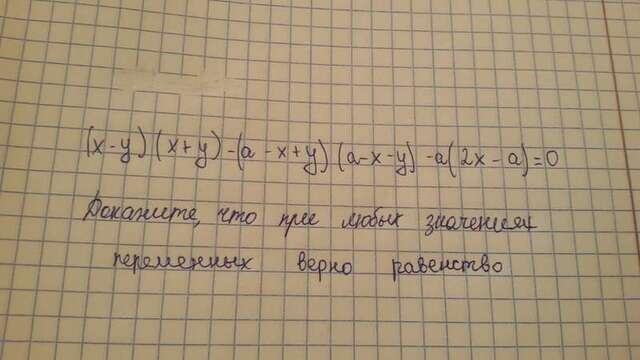 (x-y)(x+y)-(a-x+y)(a-x-y)-a(2x-a)=0
Докажите, что при любых значениях
переменных верно равенство